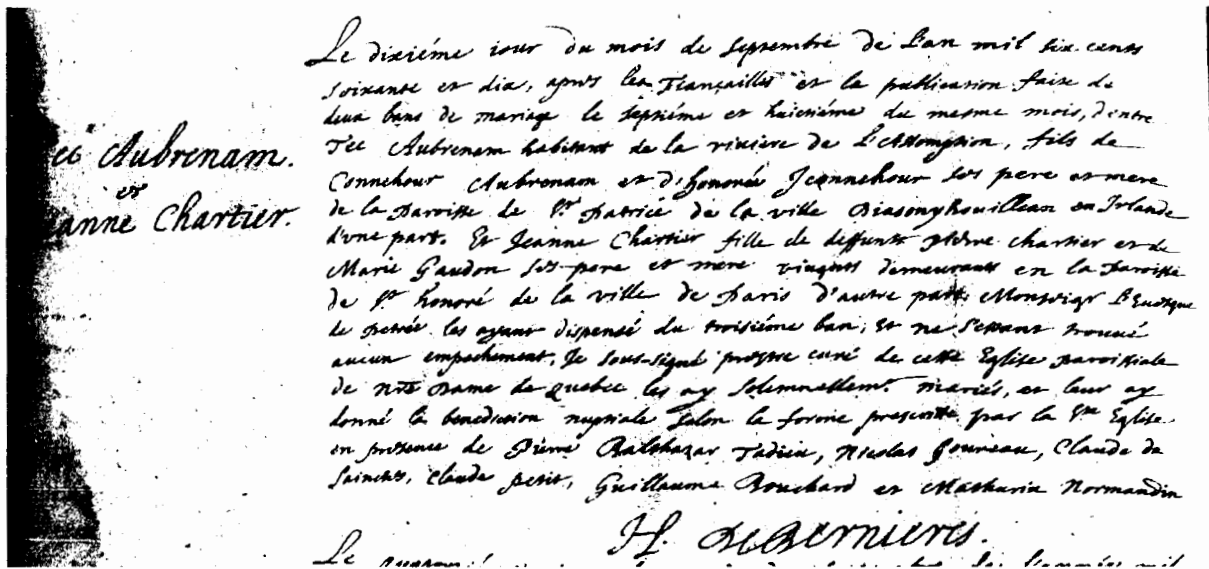 Le dixiéme iour du mois de septembre de L'an mil six cents
soixante et dix, apres les fiançailles et la publication faite de
deux bans de mariage le septiéme et huictiéme du mesme mois, d'entre
Tec Aubrenam habitant de la riuiere de L'Assomption, fils de
Connehour Aubrenam et d'honorée Jeannehour ses pere et mere
de la Paroisse de St. Patrice de la ville Diasonyhouillean en Irlande
d'vne part. Et Jeanne Chartier fille de deffunts pierre chartier et de
Marie Gaudon ses pere et mere viuants demeurants en la Paroisse
de St. honoré de la ville de Paris d'autre part, Monseigr L'Euesque
de petrée les ayant dispensé du troisiéme ban, et ne s'estant trouué
aucun empeschement, Je sous-signé prestre curé de cette Eglise Paroissiale
de Nre Dame de Quebec les ay solemnellemt. mariés, et leur ay
donné la benediction nuptiale selon la forme prescritte par la Ste Eglise
en presence de Pierre Balthazar Tadieu, Nicolas Goureau, Claude de
Sainctes, Claude petit, Guillaume Bouchard et Mathurin Normandin
H. DeBernieres.
ec Aubrenam.
et
anne Chartier.
Le